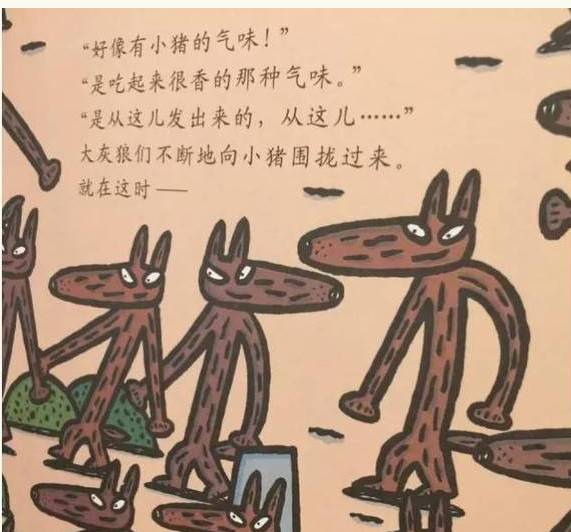 “好像有小猪的气味！”
“是吃起来很香的那种气味。”
“是从这儿发出来的，从这儿……”
大灰狼们不断地向小猪围拢过来。
就在这时——